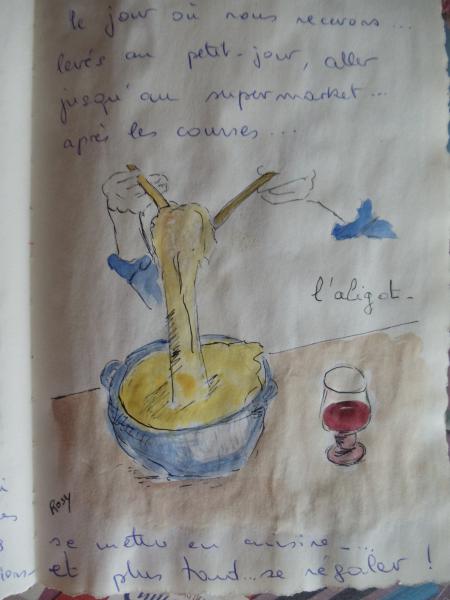 le jour où nous recevons...
levés au petit-jour, aller
jusqu'au supermarket...
après les courses...
l'aligot.
Rosy
se mettre en cuisine...
et plus tard...se régaler !